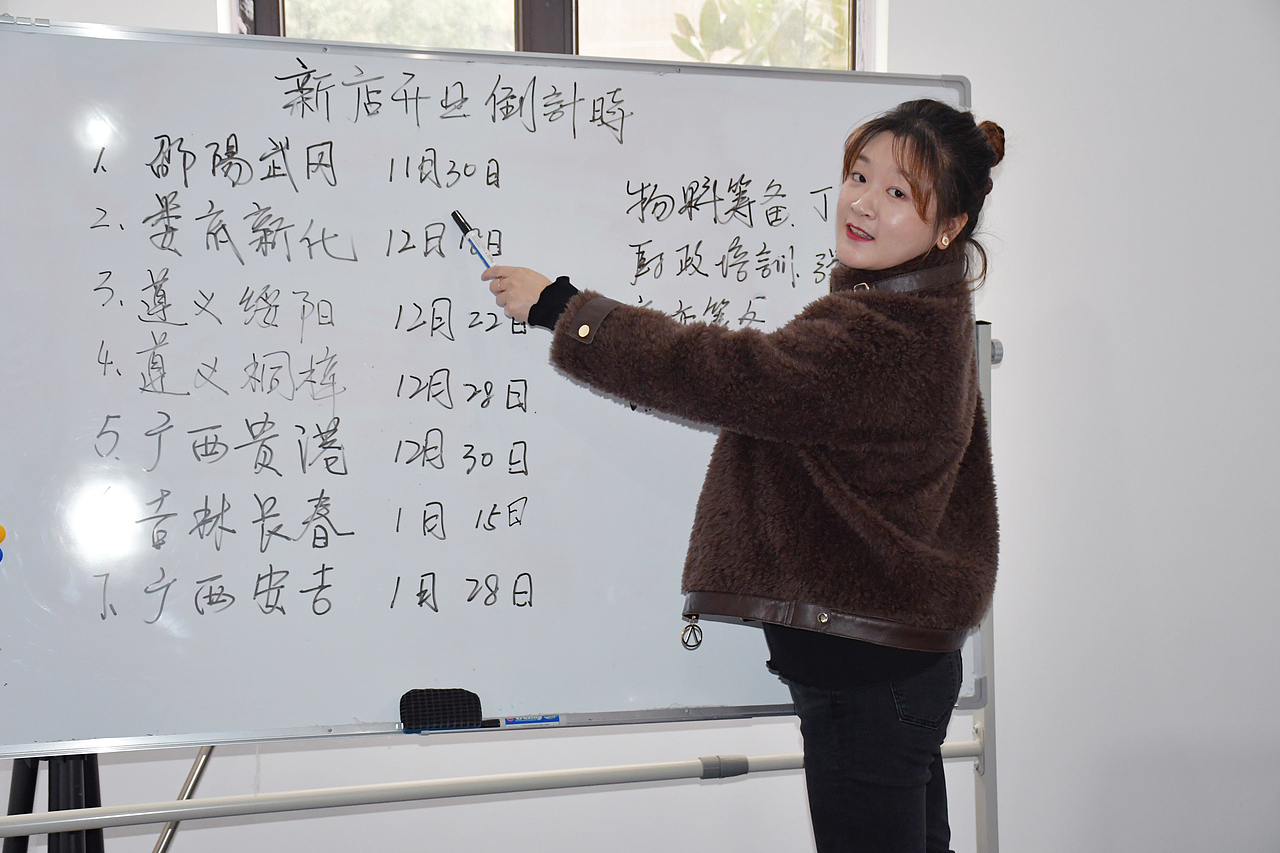 新店开业倒計時
1. 邵陽武冈 11月30日
2. 娄底新化 12月18日
3. 遵义绥阳 12月22日
4. 遵义桐梓 12月28日
5. 广西贵港 12月30日
吉林长春 1月15日
7. 广西安吉 1月28日
物料筹备
财政培訓